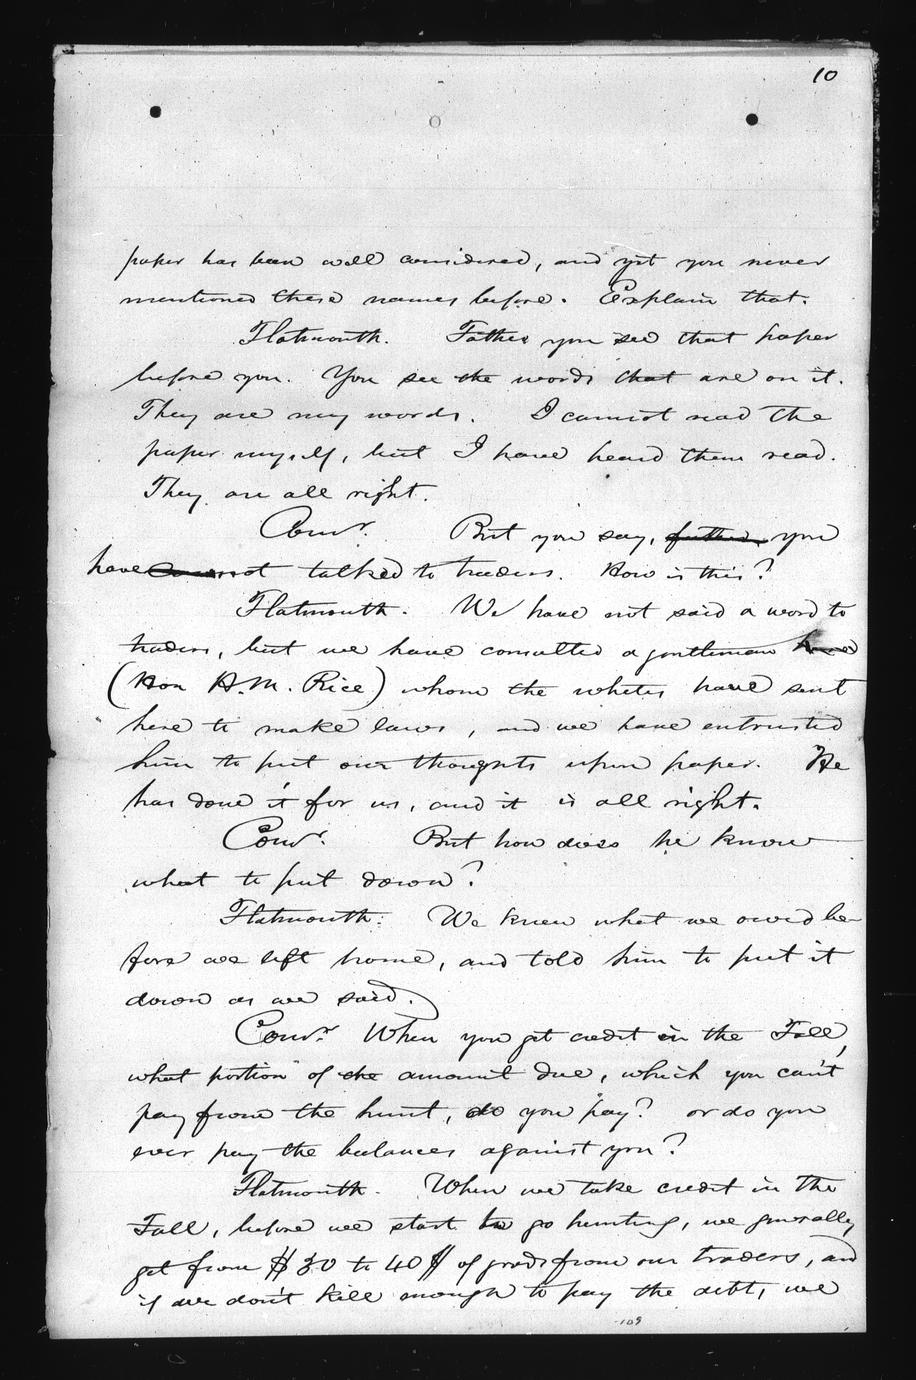 10
paper has been well considered, and yet you never
mentioned these names before. Explain that.
Flatmouth. Father you see that paper
before you. You see the words that are on it.
They are my words. I cannot read the
paper myself, but I have heard them read.
They are all right.
Comr. But you say, father, you
have not talked to traders. How is this?
Flatmouth. We have not said a word to
traders, but we have consulted a gentleman
(Hon H. M. Rice) whom the whites have sent
here to make laws, and we have entrusted
him to put our thoughts upon paper. He
has done it for us, and it is all right.
Comr. But how does he know
what to put down?
Flatmouth. We knew what we owed be
fore we left home, and told him to put it
down as we said.
Comr. When you get credit in the Fall,
what portion of the amount due, which you can't
pay from the hunt, do you pay? or do you
ever pay the balances against you?
Flatmouth. When we take credit in the
Fall, before we start to go hunting, we generally
get from $30 to 40$ of goods from our traders, and
if we don't kill enough to pay the debt, we
109